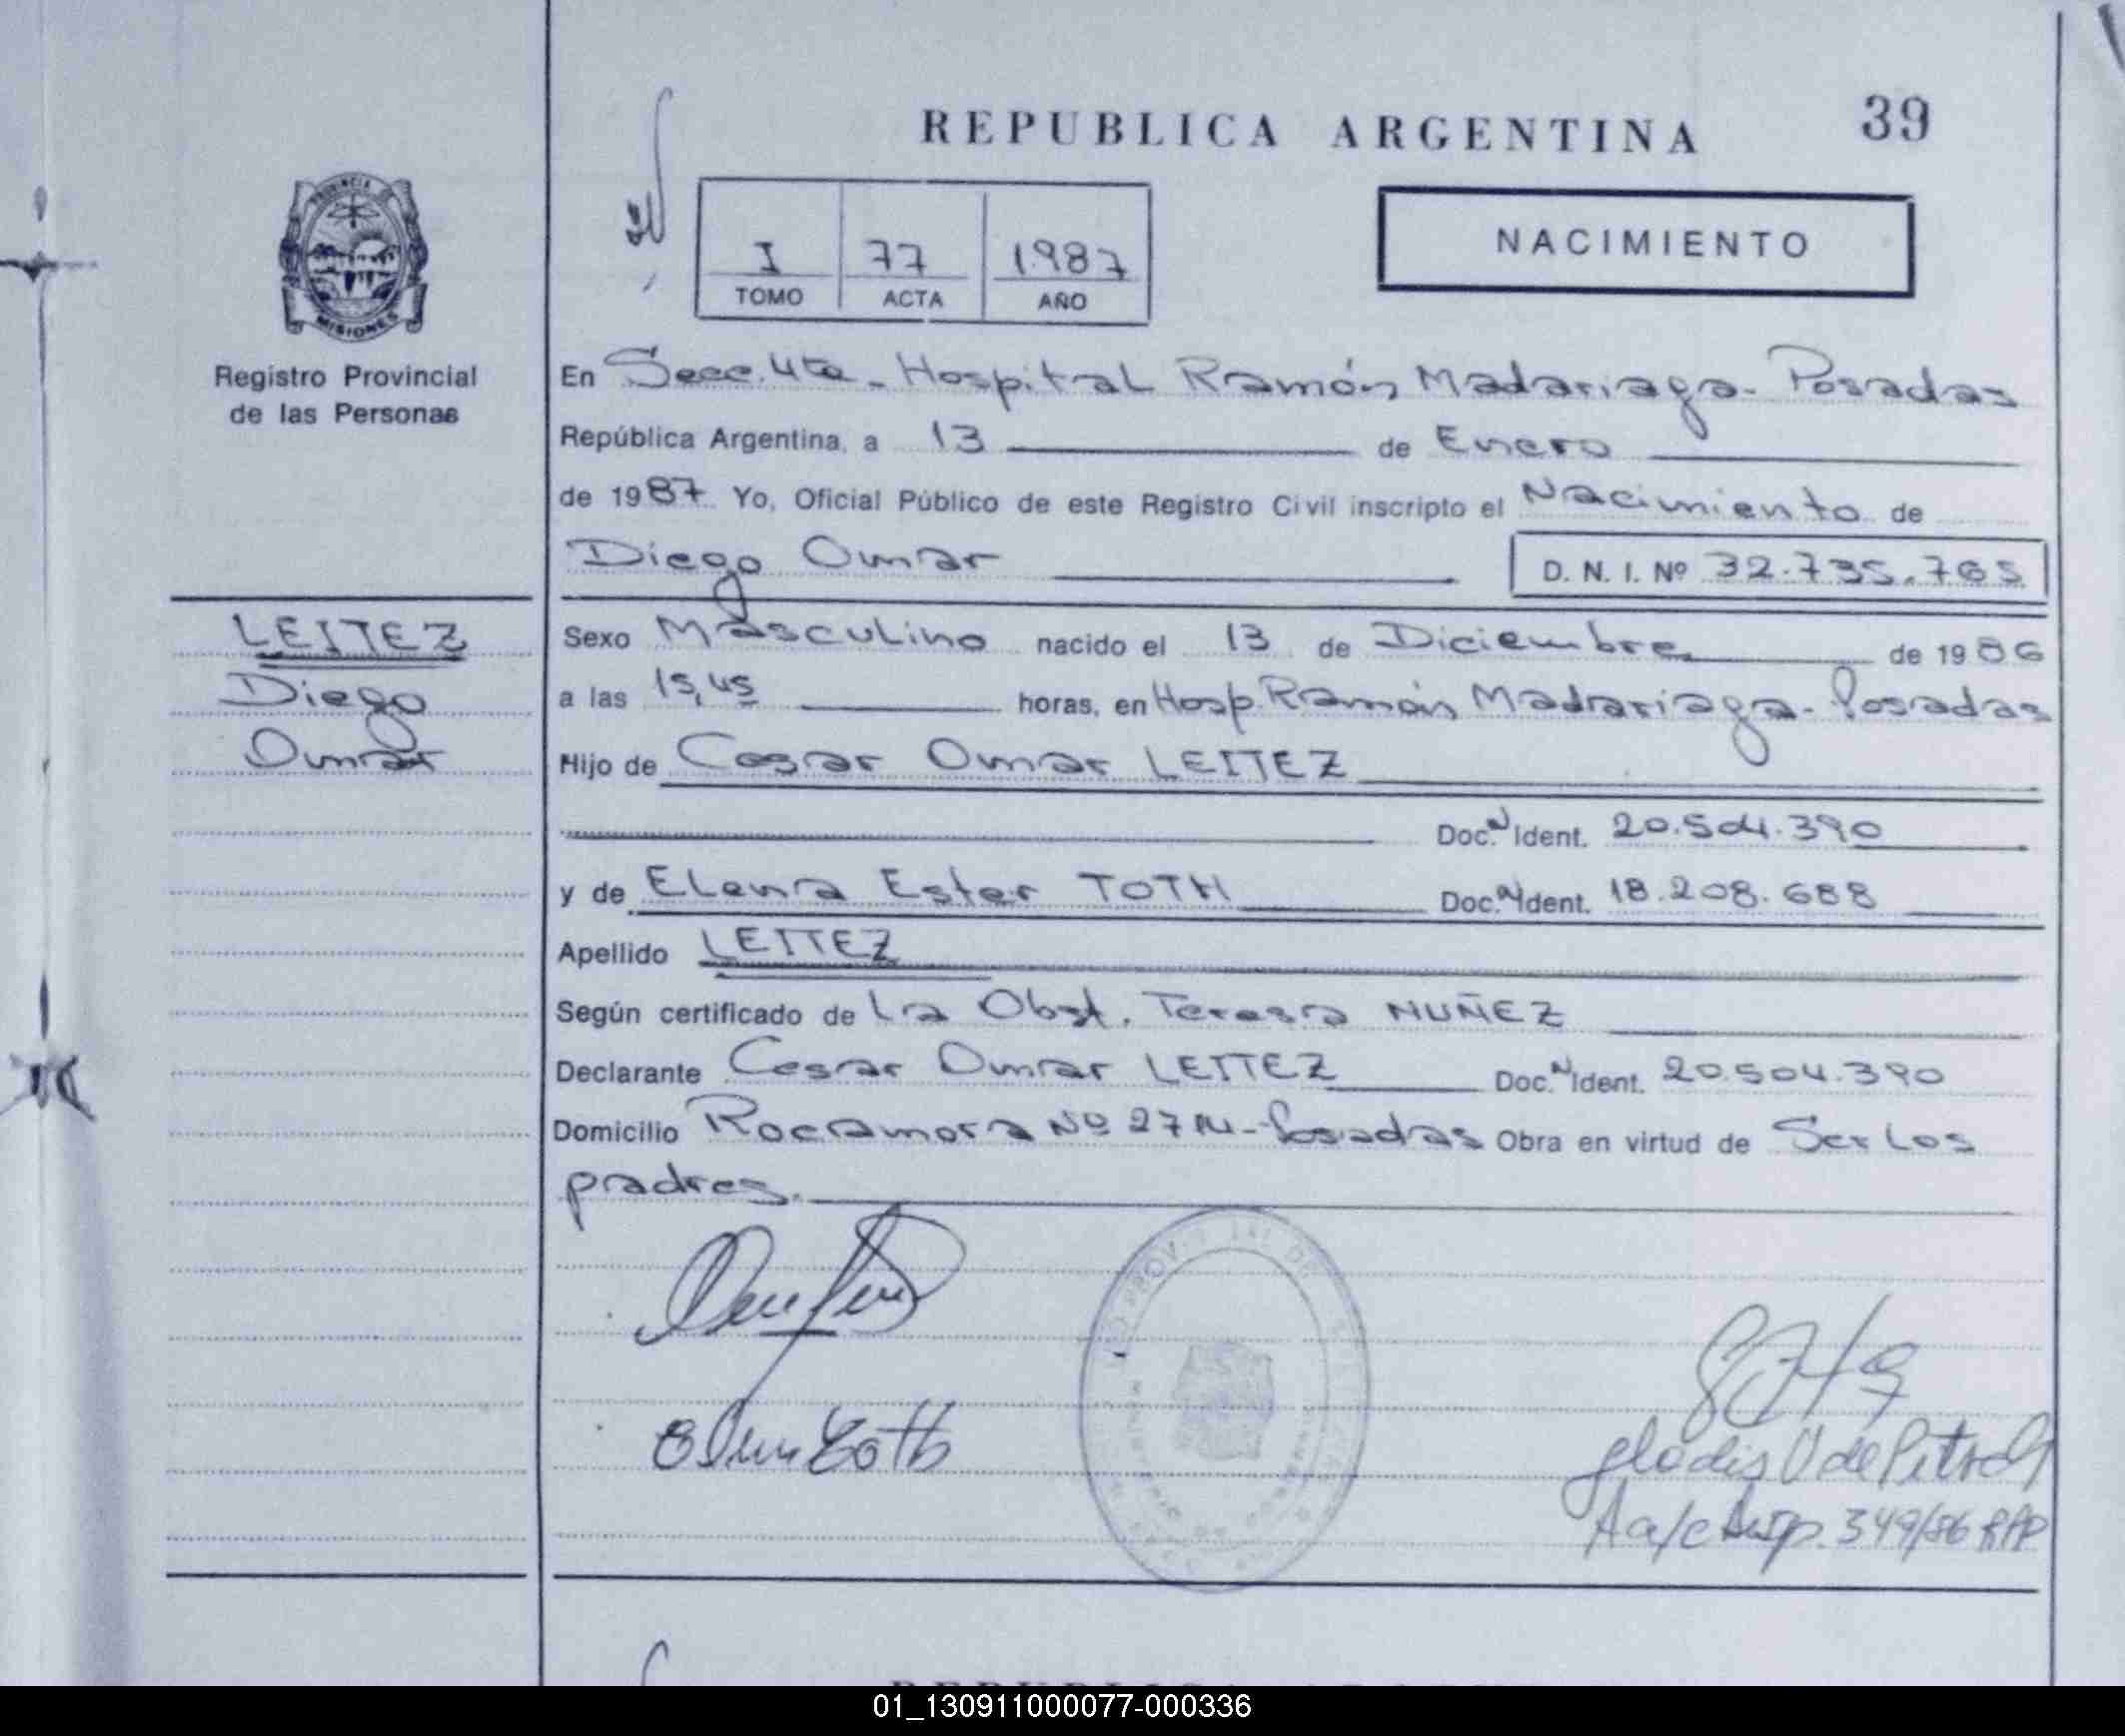 REPUBLICA ARGENTINA
39
PROVINCIA DE
MISIONES
Registro Provincial
de las Personas
I 77 1.987
TOMO ACTA AÑO
NACIMIENTO
En Secc. 4ta - Hospital Ramón Madariaga - Posadas
República Argentina, a 13 de Enero
de 1987 Yo, Oficial Público de este Registro Civil inscripto el Nacimiento de
Diego Omar D. N. I. Nº 32.735.765
LEITEZ
Diego
Omar
Sexo Masculino nacido el 13 de Diciembre de 1986
a las 15,45 horas, en Hosp. Ramón Madariaga - Posadas
Hijo de Cesar Omar LEITEZ
Doc. N Ident. 20.504.390
y de Elena Ester TOTH Doc. N Ident. 18.208.688
Apellido LEITEZ
Según certificado de La Obst. Teresa NUÑEZ
Declarante Cesar Omar LEITEZ Doc. N Ident. 20.504.390
Domicilio Rocamora Nº Posadas Obra en virtud de Ser Los
padres.
Toth
Gladis de
349/86
01_130911000077-000336